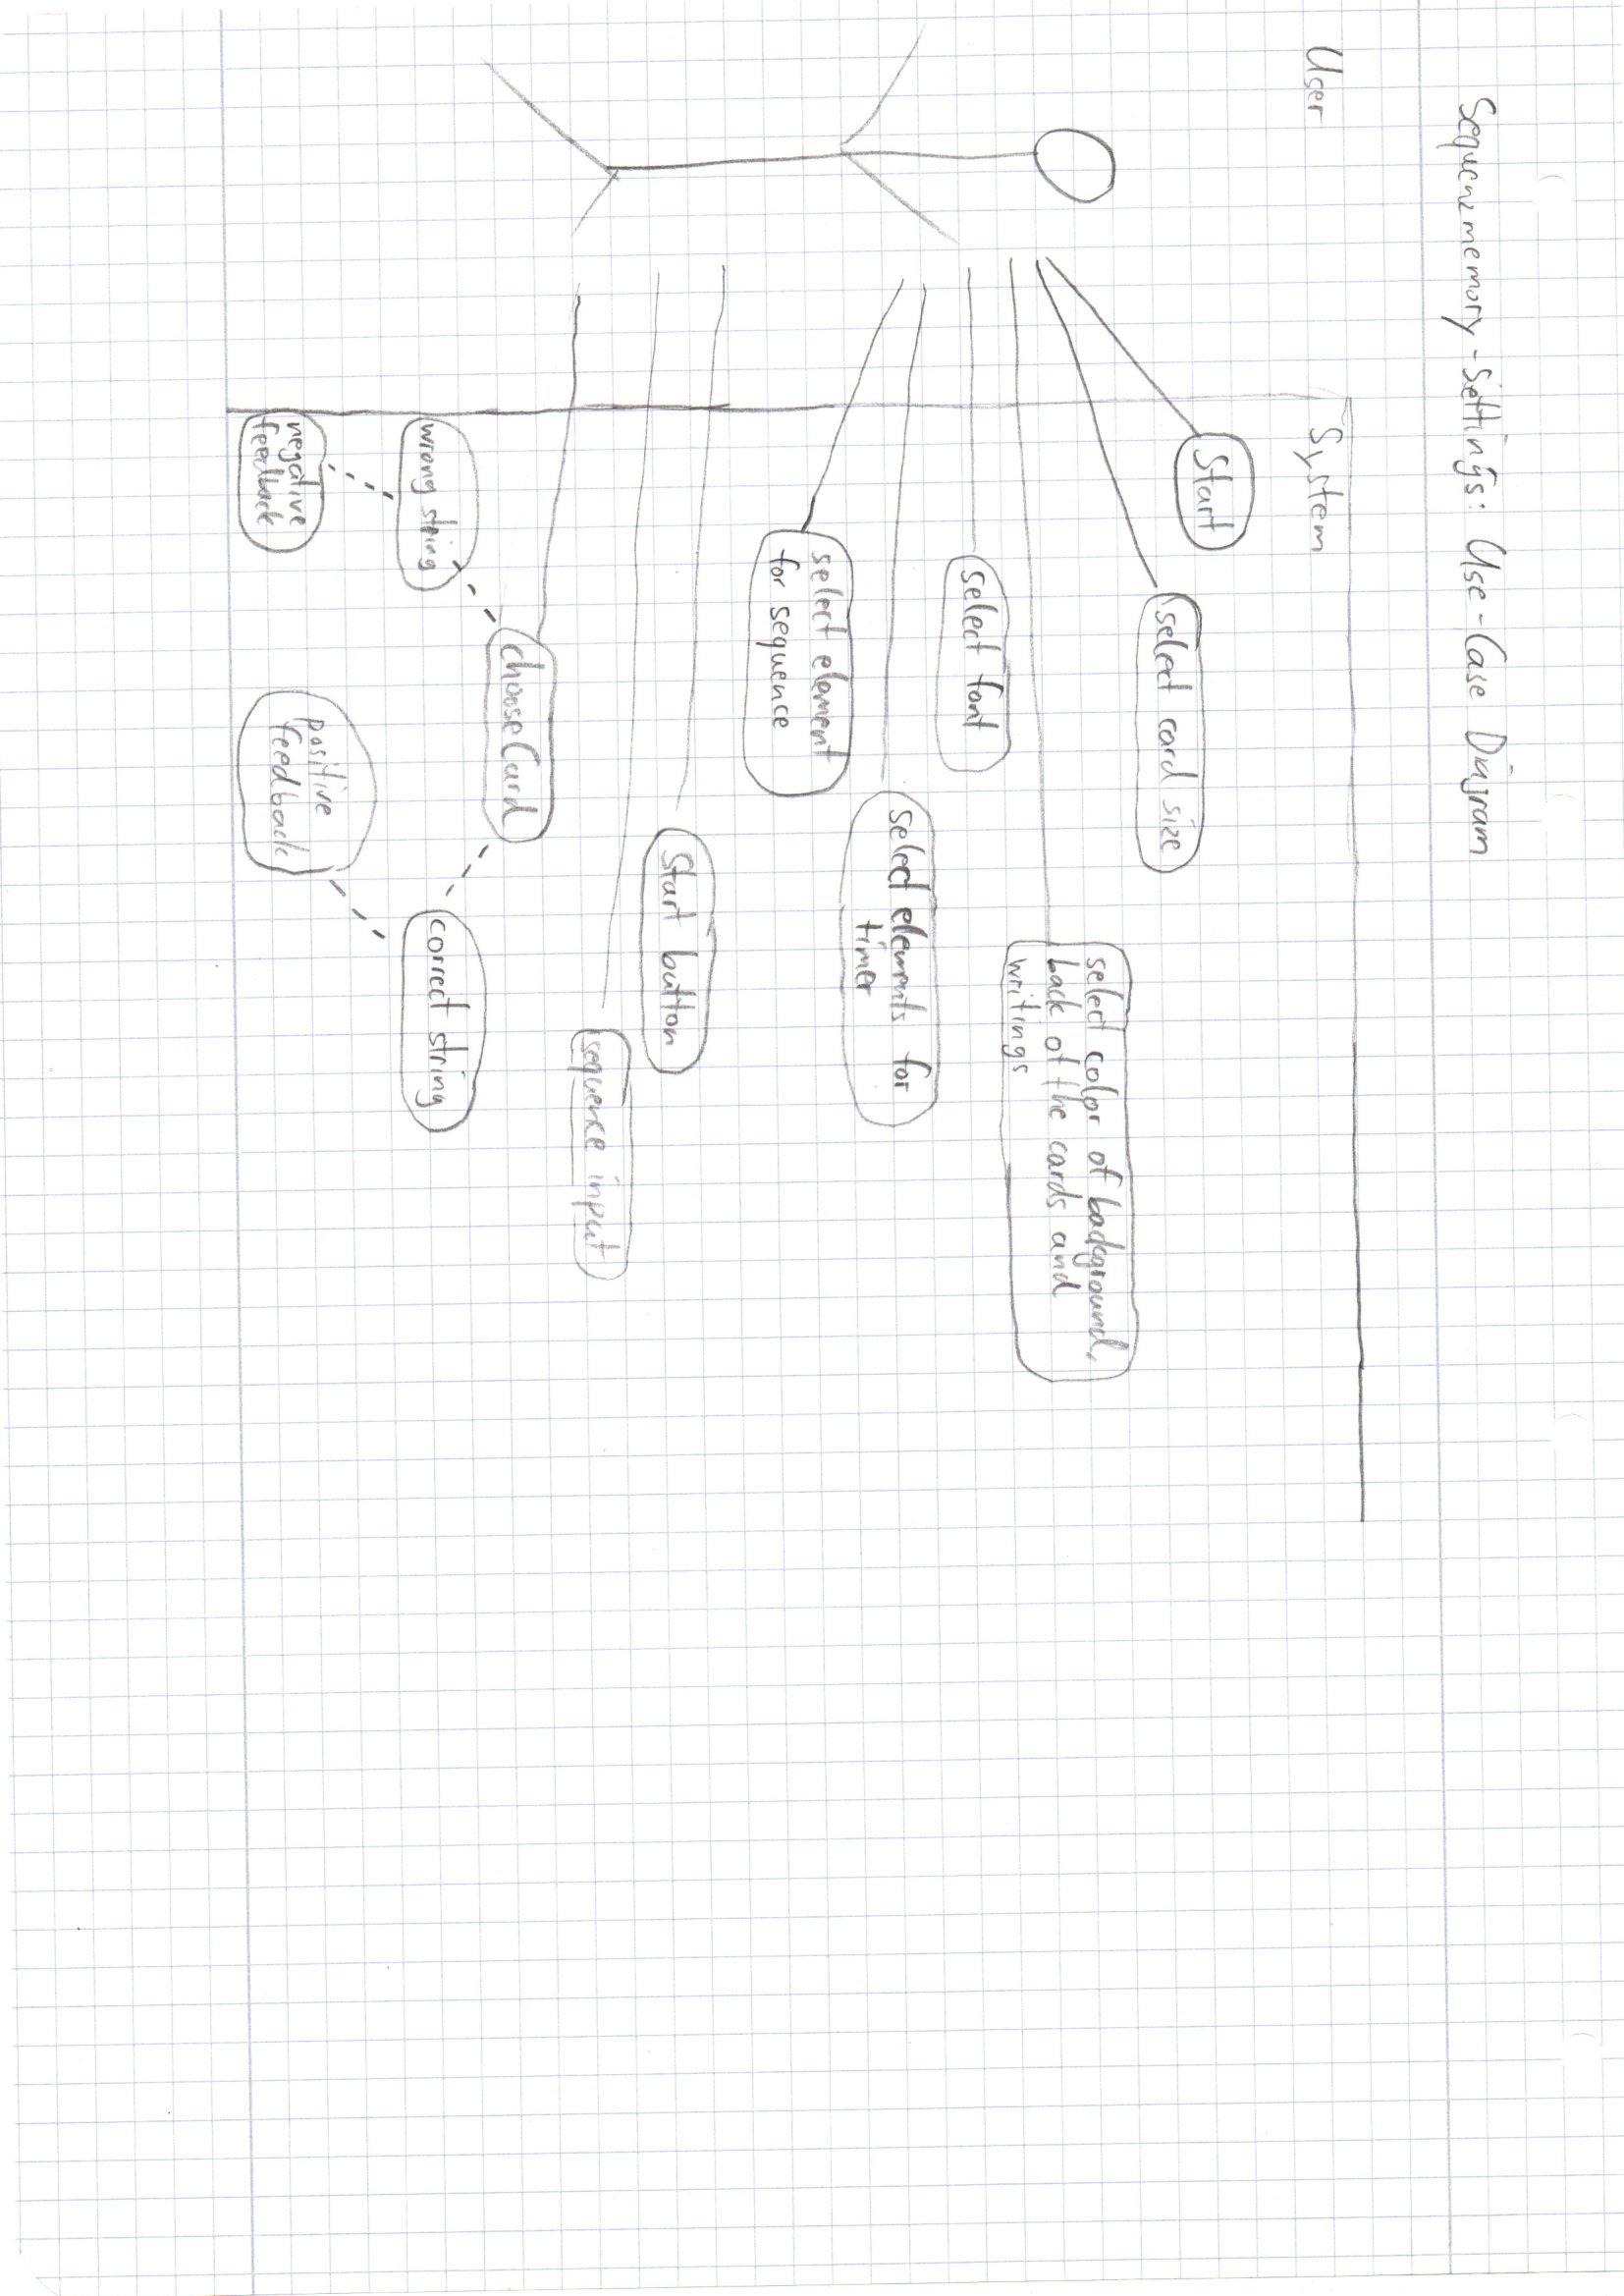 Sequenzmemory-Settings: Use-Case Diagram
User
System
Start
select card size
select color of background,
back of the cards and
writings
select font
select elements for
timer
select element
for sequence
Start button
sequence input
chooseCard
wrong string
correct string
positive
feedback
negative
feedback